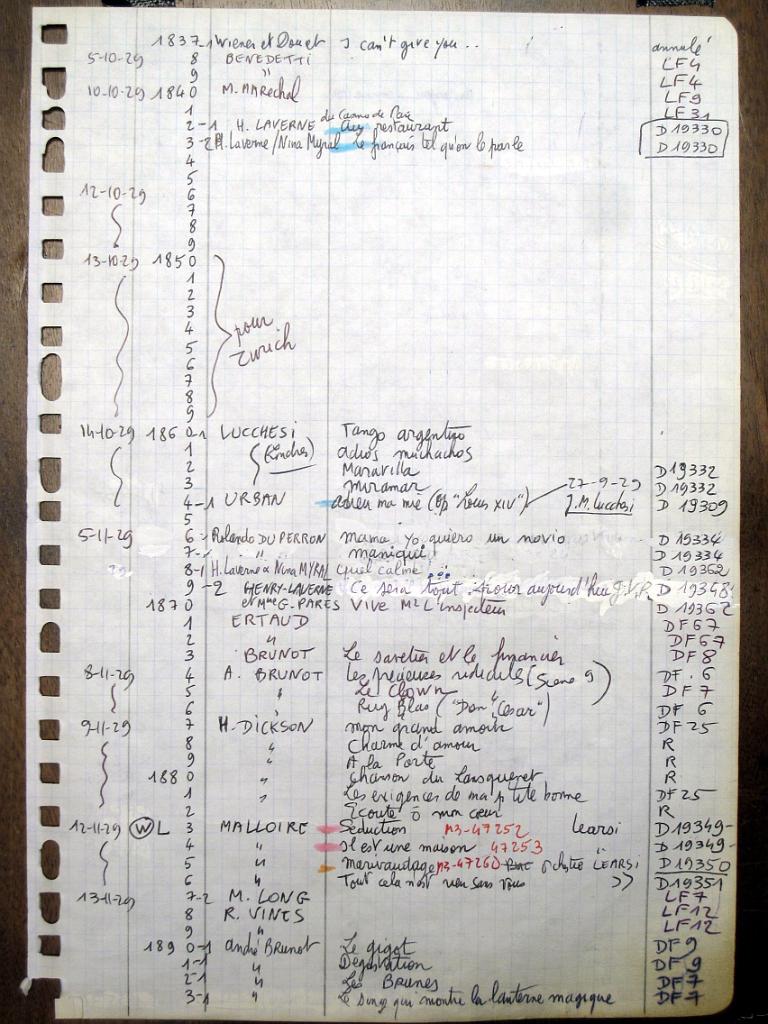 1837-1 Wiener et Doucet I can't give you.. annulé
5-10-29 8 BENEDETTI LF4
9 " LF4
10-10-29 1840 M. MARéchal LF9
1 LF31
2-1 H. LAVERNE du Casino de Paris Au restaurant D 19330
3-2 H. Laverne/Nina Myral Le français tel qu'on le parle D 19330
4
5
12-10-29 6
7
8
9
13-10-29 1850
1
2
3
4 pour
5 Zurich
6
7
8
9
14-10-29 1860-1 LUCCHESI Tango argentino
1 (Londres) adios muchachos
2 Maravilla D 19332
3 Miramar 27-9-29 D 19332
4-1 URBAN adieu ma mie (op "Louis XIV") J.M. Lucchesi D 19309
5
5-11-29 6- Rolando DU PERRON mama yo quiero un novio D 19334
7- " " maniqui D 19334
8-1 H. Laverne & Nina MYRAL quel calme! D 19362
9-2 HENRY-LAVERNE Ce sera tout pour aujourd'hui D 19348
1870 et Mme G. PARES VIVE Mr L'inspecteur D 19362
1 ERTAUD DF67
2 " DF67
3 BRUNOT Le savetier et le financier DF8
8-11-29 4 A. BRUNOT Les précieuses ridicules (Scène 9) DF.6
5 " Le Clown " DF7
6 " Ruy Blas ("Don César") DF 6
9-11-29 7 H. DICKSON mon grand amour DF25
8 " Charme d'amour R
9 " A la Porte R
1880 " Chanson du Lansquenet R
1 " Les exigences de ma p'tite bonne DF25
2 Ecoute ô mon cœur R
12-11-29 W L 3 MALLOIRE Séduction M3-47252 Learsi D 19349-
4 " Il est une maison 47253 " D 19349-
5 " Marivaudage M3-47260 orchestre LEARSI D 19350
6 " Tout cela n'est rien sans vous " D 19351
13-11-29 7-2 M. LONG LF7
8 R. VINES LF12
9 " LF12
1890-1 André Brunot Le gigot DF9
1-1 " Dégustation DF9
2-1 " Les Brunes DF7
3-1 " Le singe qui montre la lanterne magique DF7